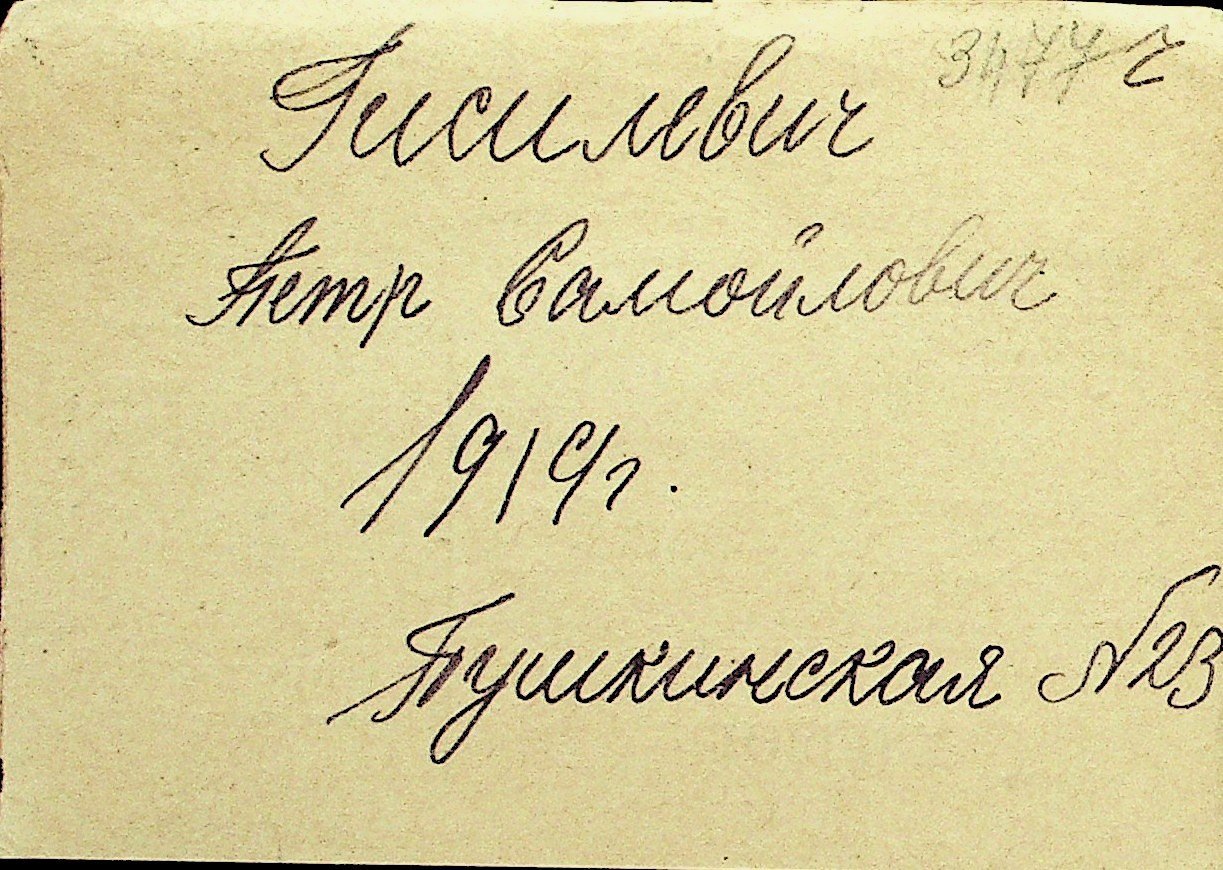 3477 г
Гисилевич
Петр Самойлович
1919г.
Пушкинская №23